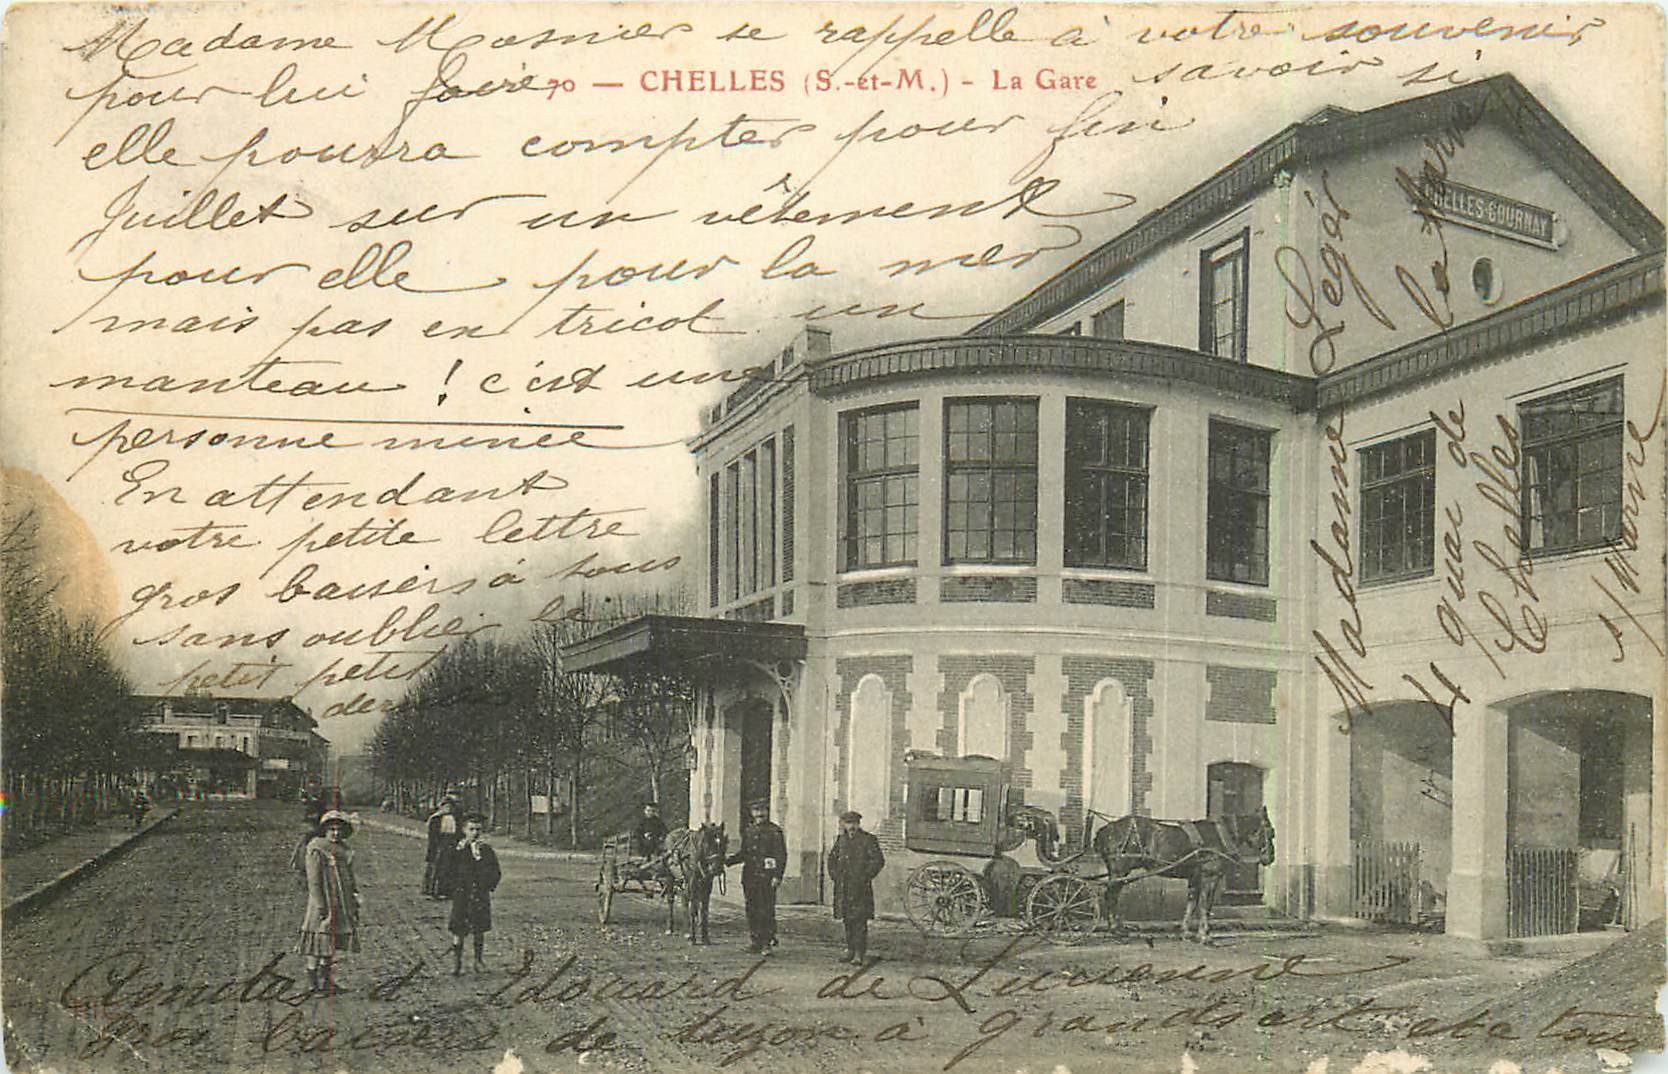 Madame Mosnier se rappelle à votre souvenir
pour lui faire savoir si
70 — CHELLES (S.-et-M.) - La Gare
elle pourra compter pour fin
Juillet sur un vêtement
pour elle pour la mer
mais pas en tricot un
manteau ! c'est une
personne mincé
En attendant
votre petite lettre
gros baisers à tous
sans oublier le
petit petit
CHELLES-GOURNAY
Madame Legér
4 quai de la Marne
Chelles
s/Marne
Amitas d Edouard de Lucienne
gros baisers de à